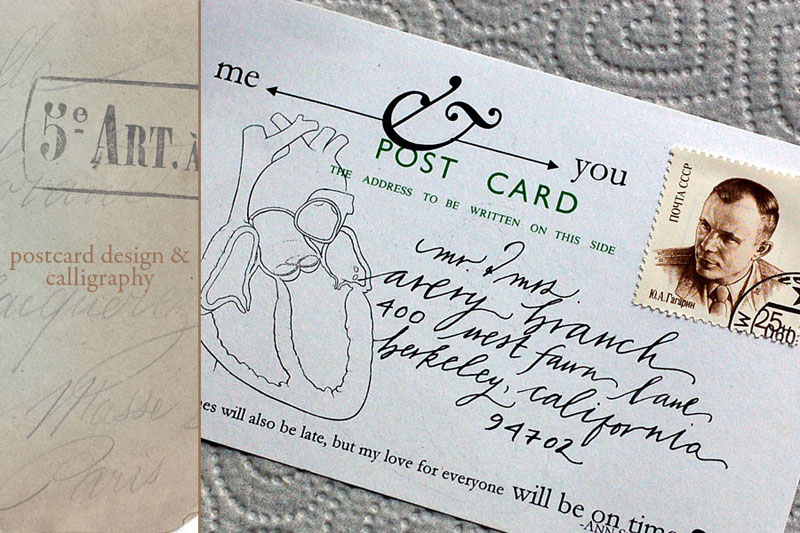 5e ART. À
postcard design &
calligraphy
Paris
me & you
POST CARD
THE ADDRESS TO BE WRITTEN ON THIS SIDE
ПОЧТА СССР
Ю.А.Гагарин
25
mr. & mrs.
avery branch
400 west fawn lane
berkeley, california
94702
es will also be late, but my love for everyone will be on time
-ANN